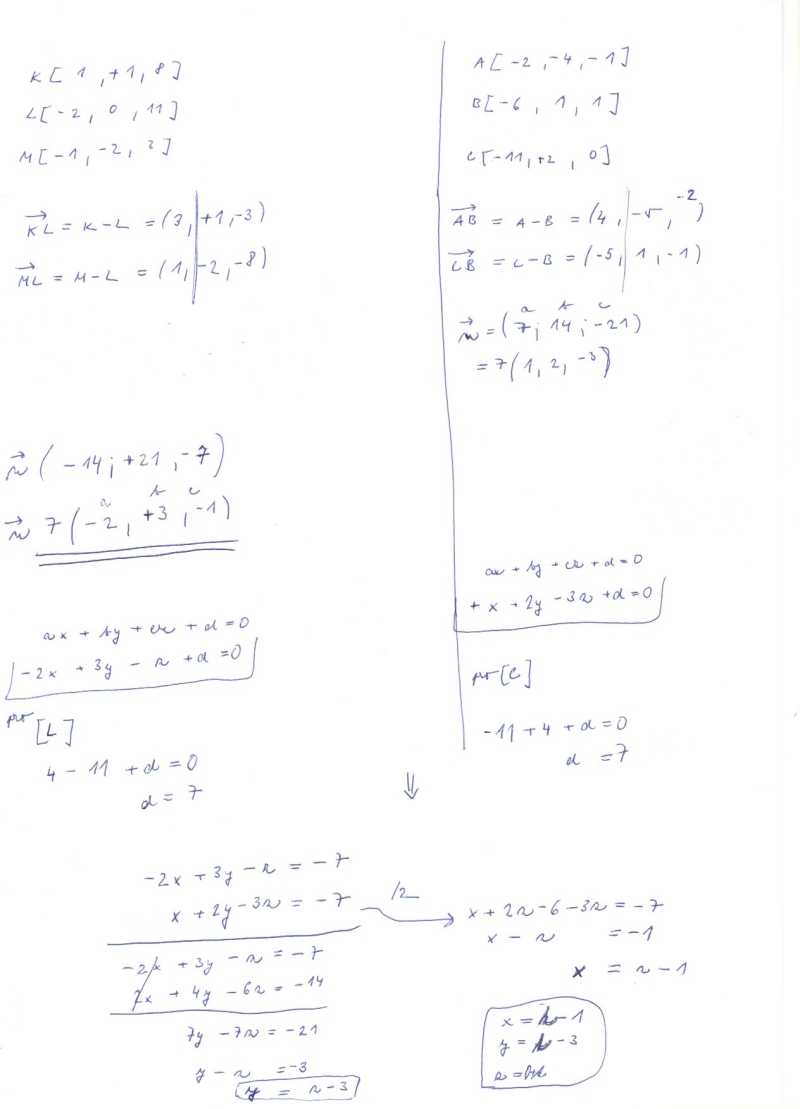 K [ 1 , +1 , 8 ]
L [ -2 , 0 , 11 ]
M [ -1 , -2 , 3 ]
→KL = K - L = (3, +1, -3)
→ML = M - L = (1, -2, -8)
→n ( -14 ; +21 , -7 )
a b c
→n 7 ( -2 , +3 , -1 )
ax + by + cz + d = 0
-2x + 3y - z + d = 0
pro [L]
4 - 11 + d = 0
d = 7
A [ -2 , -4 , -1 ]
B [ -6 , 1 , 1 ]
C [ -11 , +2 , 0 ]
→AB = A - B = (4, -5, -2)
→CB = C - B = (-5, 1, -1)
a b c
→n = ( 7 ; 14 ; -21 )
= 7 ( 1 , 2 , -3 )
ax + by + cz + d = 0
+ x + 2y - 3z + d = 0
pro [C]
-11 + 4 + d = 0
d = 7
⇓
-2x + 3y - z = -7
x + 2y - 3z = -7 /2
-2x + 3y - z = -7
2x + 4y - 6z = -14
7y - 7z = -21
y - z = -3
y = z - 3
x + 2z - 6 - 3z = -7
x - z = -1
x = z - 1
x = - 1
y = - 3
z =